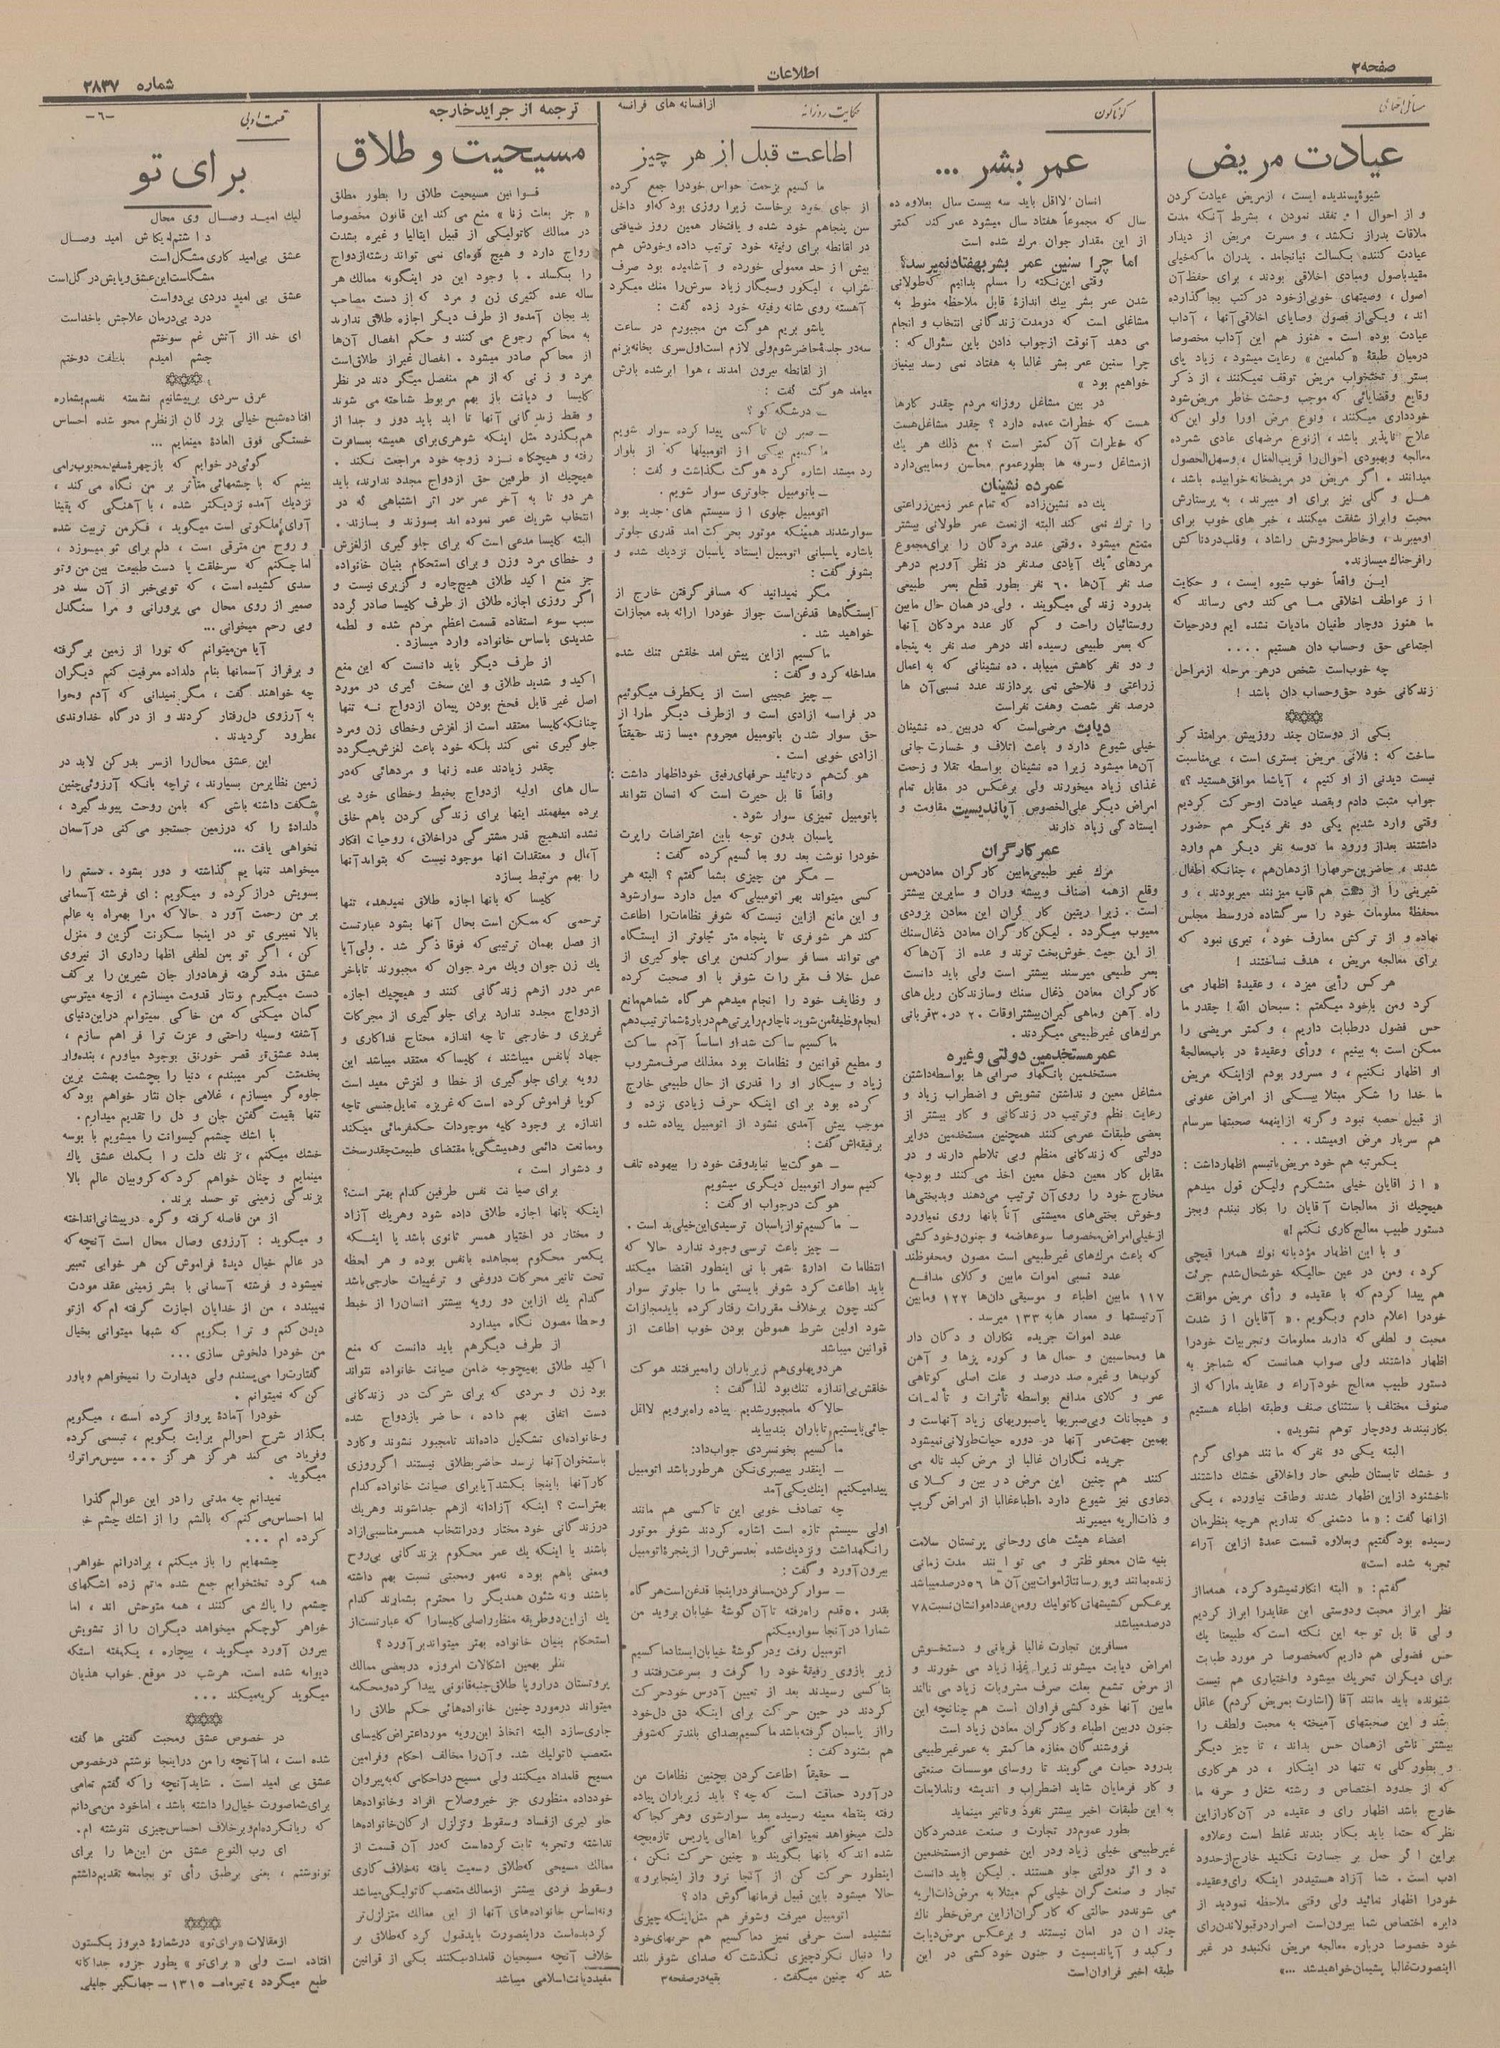 صفحه ۲
اطلاعات
شماره ۲۸۳۷
عیادت مریض
شیوهٔ پسندیده ایست ، از مریض عیادت کردن
ملاقات بدراز نکشد ، و مسرت مریض از دیدار
عیادت کننده بکسالت نیانجامد . پدران ما که خیلی
مقید باصول و مبادی اخلاقی بودند ، برای حفظ آن
اصول ، وصیتهای خوبی از خود در کتب بجا گذارده
اند ، و یکی از فصول وصایای اخلاقی آنها ، آداب
عیادت بوده است . هنوز هم این آداب مخصوصا
بستر و تختخواب مریض توقف نمیکنند ، از ذکر
وقایع و قضایائی که موجب وحشت خاطر مریض شود
خودداری میکنند ، و نوع مرض او را ولو این که
علاج ناپذیر باشد ، از نوع مرضهای عادی شمرده
معالجه و بهبودی احوال را قریب المنال ، و سهل الحصول
میدانند . اگر مریض در مریضخانه خوابیده باشد ،
هل و گلی نیز برای او میبرند ، به پرستارش
محبت و ابراز شفقت میکنند ، خبر های خوب برای
او میبرند ، و خاطر محزونش را شاد ، و قلب دردناکش
را فرحناک میسازند.
این واقعاً خوب شیوه ایست ، و حکایت
از عواطف اخلاقی ما می کند و می رساند که
ما هنوز دوچار طغیان مادیات نشده ایم و در حیات
اجتماعی حق و حساب دان هستیم ....
چه خوب است شخص در هر مرحله از مراحل
زندگانی خود حق و حساب دان باشد !
یکی از دوستان چند روز پیش مرا متذکر
ساخت که : فلانی مریض بستری است ، بی مناسبت
نیست دیدنی از او کنیم ، آیا شما موافق هستید ؟»
جواب مثبت دادم و بقصد عیادت او حرکت کردیم
وقتی وارد شدیم یکی دو نفر دیگر هم حضور
داشتند بعد از ورود ما دو سه نفر دیگر هم وارد
شدند ، حاضرین حرفها را از دهان هم ، چنانکه اطفال
شیرینی را از دست هم قاپ میزنند میربودند ، و
محفظهٔ معلومات خود را سر گشاده در وسط مجلس
نهاده و از ترکش معارف خود ، تیری نبود که
برای معالجه مریض ، هدف نساختند !
هر کس رأیی میزد ، و عقیدهٔ اظهار می
کرد و من با خود میگفتم : سبحان الله ! چقدر ما
حس فضول در طبابت داریم ، و کمتر مریضی را
ممکن است به بینیم ، و رأی و عقیدهٔ در باب معالجهٔ
او اظهار نکنیم ، و مسرور بودم از اینکه مریض
ما خدا را شکر مبتلا بیکی از امراض عفونی
از قبیل حصبه نبود و گرنه از اینهمه صحبتها سرسام
هم سربار مرض او میشد ...
یکمرتبه هم خود مریض با تبسم اظهار داشت :
« از آقایان خیلی متشکرم ولیکن قول میدهم
هیچیک از معالجات آقایان را بکار نبندم و بجز
دستور طبیب معالج کاری نکنم !»
و با این اظهار مؤدبانه نوک همه را قیچی
کرد ، و من در عین حالیکه خوشحال شدم جرئت
هم پیدا کردم که با عقیده و رأی مریض موافقت
خود را اعلام دارم و بگویم . « آقایان از شدت
محبت و لطفی که دارند معلومات و تجربیات خود را
اظهار داشتند ولی صواب همانست که شما جز به
دستور طبیب معالج خود آراء و عقاید ما را که از
صنوف مختلف با ستثنای صنف و طبقه اطباء هستیم
بکار نبندید و دوچار توهم نشوید» .
البته یکی دو نفر که مانند هوای گرم
و خشک تابستان طبعی حار و اخلاقی خشک داشتند
ناخشنود از این اظهار شدند و طاقت نیاورده ، یکی
از آنها گفت : « ما دشمنی که نداریم هر چه بنظرمان
رسیده بود گفتیم و بعلاوه قسمت عمدهٔ از این آراء
تجربه شده است»
گفتم : « البته انکار نمیشود کرد ، همه را از
نظر ابراز محبت و دوستی این عقاید را ابراز کردیم
ولی قابل توجه این نکته است که طبیعتا یک
حس فضولی هم داریم که مخصوصا در مورد طبابت
برای دیگران تحریک میشود و اختیاری هم نیست
شنونده باید مانند آقا (اشارت بمریض کردم) عاقل
شد و این صحبتهای آمیخته به محبت و لطف را
بیشتر ناشی از همان حس بداند ، تا چیز دیگر
و بطور کلی نه تنها در اینکار ، در هر کاری
که از حدود اختصاص و رشته شغل و حرفه ما
خارج باشد اظهار رای و عقیده در آن کار از این
نظر که حتما باید بکار بندند غلط است و علاوه
بر این اگر حمل بر جسارت نکنید خارج از حدود
ادب است . شما آزاد هستید در اینکه رای و عقیده
خود را اظهار نمائید ولی وقتی ملاحظه نمودید از
دایره اختصاص شما بیرون است اصرار در قبولاندن رای
خود خصوصا درباره معالجه مریض نکنید و در غیر
اینصورت غالبا پشیمان خواهید شد ...»
گوناگون
عمر بشر ...
انسان لااقل باید سه بیست سال بعلاوه ده
سال که مجموعاً هفتاد سال میشود عمر کند کمتر
از این مقدار جوان مرگ شده است
اما چرا سنین عمر بشر بهفتاد نمیرسد؟
وقتی این نکته را مسلم بدانیم که طولانی
شدن عمر بشر بیک اندازهٔ قابل ملاحظه منوط به
مشاغلی است که در مدت زندگانی انتخاب و انجام
می دهد آنوقت از جواب دادن باین سئوال که :
چرا سنین عمر بشر غالبا به هفتاد نمی رسد بینیاز
خواهیم بود »
در بین مشاغل روزانه مردم چقدر کارها
هست که خطرات عمده دارد ؟ چقدر مشاغل هست
که خطرات آن کمتر است ؟ مع ذلک هر یک
از مشاغل و حرفه ها بطور عموم محاسن و معایبی دارد
عمر ده نشینان
یک ده نشین زاده که تمام عمر زمین زراعتی
را ترک نمی کند البته از نعمت عمر طولانی بیشتر
متمتع میشود . وقتی عدد مردگان را برای مجموع
مردهای یک آبادی صد نفر در نظر آوریم در هر
صد نفر آن‌ها ۶۰ نفر بطور قطع بعمر طبیعی
بدرود زندگی میگویند . ولی در همان حال مابین
روستائیان راحت و کم کار عدد مردگان آنها
که بعمر طبیعی رسیده اند در هر صد نفر به پنجاه
و دو نفر کاهش مییابد . ده نشینانی که به اعمال
زراعتی و فلاحتی نمی پردازند عدد نسبی آن ها
در صد نفر شصت و هفت نفر است
دیابت مرضی است که در بین ده نشینان
خیلی شیوع دارد و باعث اتلاف و خسارت جانی
آن‌ها میشود زیرا ده نشینان بواسطه تقلا و زحمت
غذای زیاد میخورند ولی برعکس در مقابل تمام
امراض دیگر علی الخصوص آپاندیسیت مقاومت و
ایستادگی زیاد دارند
عمر کارگران
مرگ غیر طبیعی مابین کارگران معادن مس
وقلع از همه اصناف و پیشه وران و سایرین بیشتر
است . زیرا ریتین کارگران این معادن بزودی
معیوب میگردد . لیکن کارگران معادن ذغال سنگ
از این حیث خوش بخت ترند و عده از آن‌ها که
بعمر طبیعی میرسند بیشتر است ولی باید دانست
کارگران معادن ذغال سنگ و سازندگان ریل های
راه آهن و ماهی گیران بیشتر اوقات ۲۰ در ۳۰ قربانی
مرگ‌های غیر طبیعی میگردند .
عمر مستخدمین دولتی و غیره
مستخدمین بانکها و صرافی ها بواسطه داشتن
مشاغل معین و نداشتن تشویش و اضطراب زیاد و
رعایت نظم و ترتیب در زندگانی و کار بیشتر از
بعضی طبقات عمر می کنند همچنین مستخدمین دوایر
دولتی که زندگانی منظم و بی تلاطم دارند و در
مقابل کار معین دخل معین اخذ می کنند و بودجه
مخارج خود را روی آن ترتیب می‌دهند و بدبختی‌ها
و خوش بختی های معیشتی آناً بانها روی نمیاورد
از خیلی امراض مخصوصا سوء هاضمه و جنون و خود کشی
که باعث مرگ های غیر طبیعی است مصون و محفوظند
عدد نسبی اموات مابین و کلای مدافع
۱۱۷ مابین اطباء و موسیقی دان‌ها ۱۲۲ و مابین
آرتیستها و معمار ها به ۱۳۳ میرسد .
عدد اموات جریده نگاران و دکان دار
ها و محاسبین و حمال ها و کوره پزها و آهن
کوب‌ها و غیره صد در صد و علت اصلی کوتاهی
عمر و کلای مدافع بواسطه تأثرات و تألمات
و هیجانات و بی‌صبریها یا صبوریهای زیاد آنهاست و
بهمین جهت عمر آنها در دوره حیات طولانی نمیشود
جریده نگاران غالبا از مرض کبد ناله می
کنند هم چنین این مرض در بین و کلای
دعاوی نیز شیوع دارد . اطباء غالبا از امراض گریپ
و ذات الریه میمیرند
اعضاء هیئت های روحانی پرتستان سلامت
بنیه شان محفوظ تر و می توانند مدت زمانی
برعکس کشیشهای کاتولیک رومن عدد امواتشان نسبت ۷۸
درصد میباشد
مسافرین تجارت غالبا قربانی و دستخوش
امراض دیابت میشوند زیرا غذا زیاد می خورند و
از مرض تشمع بعلت صرف مشروبات زیاد می نالند
مابین آنها خود کشی فراوان است هم چنانچه این
جنون در بین اطباء و کارگران معادن زیاد است
فروشندگان مغازه ها کمتر به عمر غیر طبیعی
بدرود حیات می گویند تا روسای موسسات صنعتی
و کار فرمایان شاید اضطراب و اندیشه و ناملایمات
به این طبقات اخیر بیشتر نفوذ و تاثیر مینماید
بطور عموم در تجارت و صنعت عدد مردگان
غیر طبیعی خیلی زیاد و در این خصوص از مستخدمین
دوائر دولتی جلو هستند . لیکن باید دانست
تجار و صنعت گران خیلی کم مبتلا به مرض ذات الریه
می شوند در حالتی که کارگران از این مرض خطر ناک
چندان در امان نیستند و برعکس مرض دیابت
و کبد و آپاندیسیت و جنون خود کشی در این
طبقه اخیر فراوان است
حکایت روزانه
از افسانه های فرانسه
اطاعت قبل از هر چیز
ماکسیم بزحمت حواس خود را جمع کرده
از جای خود برخاست زیرا روزی بود که او داخل
سن پنجاهم خود شده و بافتخار همین روز ضیافتی
در لقانطه برای رفیقه خود ترتیب داده و خودش هم
بیش از حد معمولی خورده و آشامیده بود صرف
شراب ، لیکور و سیگار زیاد سرش را منگ میکرد
آهسته روی شانه رفیقه خود زده گفت :
پاشو بریم هوگت من مجبورم در ساعت
سه در جلسهٔ حاضر شوم ولی لازم است اول سری بخانه بزنم
از لقانطه بیرون آمدند ، هوا ابر شده بارش
میامد هوگت گفت :
ـ درشگه کو ؟
ـ صبر کن تاکسی پیدا کرده سوار شویم
ماکسیم بیکی از اتومبیلها که از بلوار
رد میشد اشاره کرد هوگت نگذاشت و گفت :
ـ باتومبیل جلوتری سوار شویم .
اتومبیل جلوی از سیستم های جدید بود
سوار شدند همینکه موتور بحرکت آمد قدری جلوتر
باشاره پاسبانی اتومبیل ایستاد پاسبان نزدیک شده و
بشوفر گفت :
مگر نمیدانید که مسافر گرفتن خارج از
ایستگاه‌ها قدغن است جواز خود را ارائه بده مجازات
خواهید شد .
ماکسیم از این پیش آمد خلقش تنگ شده
مداخله کرد و گفت :
ـ چیز عجیبی است از یکطرف میگوئیم
در فرانسه آزادی است و از طرف دیگر ما را از
حق سوار شدن باتومبیل محروم میسازند حقیقتاً
آزادی خوبی است .
هوگت هم در تائید حرفهای رفیق خود اظهار داشت :
واقعاً قابل حیرت است که انسان نتواند
باتومبیل تمیزی سوار شود .
پاسبان بدون توجه باین اعتراضات راپرت
خود را نوشت بعد رو بماکسیم کرده گفت :
ـ مگر من چیزی بشما گفتم ؟ البته هر
کسی میتواند بهر اتومبیلی که میل دارد سوار شود
و این مانع از این نیست که شوفر نظامات را اطاعت
کند هر شوفری تا پنجاه متر جلوتر از ایستگاه
می تواند مسافر سوار کند من برای جلوگیری از
عمل خلاف مقررات شوفر با او صحبت کرده
و وظایف خود را انجام میدهم هر گاه شما هم مانع
انجام وظیفهٔ من شوید ناچارم راپرتی هم درباره شما ترتیب دهم
ماکسیم ساکت شد او اساساً آدم ساکت
و مطیع قوانین و نظامات بود معذلک صرف مشروب
زیاد و سیگار او را قدری از حال طبیعی خارج
کرده بود برای اینکه حرف زیادی نزده و
موجب پیش آمدی نشود از اتومبیل پیاده شده و
برفیقه‌اش گفت :
ـ هوگت بیا نباید وقت خود را بیهوده تلف
کنیم سوار اتومبیل دیگری میشویم
هوگت در جواب او گفت :
ـ ماکسیم تو از پاسبان ترسیدی این خیلی بد است .
ـ چیز باعث ترسی وجود ندارد حالا که
انتظامات ادارهٔ شهربانی اینطور اقتضا میکند
باید اطاعت کرد شوفر بایستی ما را جلوتر سوار
کند چون برخلاف مقررات رفتار کرده باید مجازات
شود اولین شرط هموطن بودن خوب اطاعت از
قوانین میباشد
هر دو پهلوی هم زیر باران راه میرفتند هوگت
خلقش بی‌اندازه تنگ بود لذا گفت :
حالا که ما مجبور شدیم پیاده راه برویم لااقل
جائی بایستیم تا باران بند بیاید
ماکسیم بخونسردی جواب داد:
ـ اینقدر بیصبری نکن هر طور باشد اتومبیل
پیدا میکنیم اینک یکی آمد
چه تصادف خوبی این تاکسی هم مانند
اولی سیستم تازه است اشاره کردند شوفر موتور
را نگهداشت و نزدیک شده بعد سرش را از پنجرهٔ اتومبیل
بیرون آورد و گفت :
ـ سوار کردن مسافر در اینجا قدغن است هر گاه
بقدر ۵۰ قدم راه رفته تا آن گوشهٔ خیابان بروید من
شما را در آنجا سوار میکنم
اتومبیل رفت و در گوشهٔ خیابان ایستاد ماکسیم
زیر بازوی رفیقهٔ خود را گرفت و بسرعت رفتند و
بتاکسی رسیدند بعد از تعیین آدرس خود حرکت
کردند در حین حرکت برای اینکه دق دل خود
را از پاسبان گرفته باشد ماکسیم بصدای بلند تر که شوفر
هم بشنود گفت :
ـ حقیقتاً اطاعت کردن بچنین نظامات من
در آورد حماقت است که چه ؟ باید زیر باران پیاده
رفته بنقطه معینه رسیده بعد سوار شوی و هر کجا که
دلت میخواهد نمیتوانی گویا اهالی پاریس تازه بچه
شده اند که بانها بگویند « چنین حرکت نکن ،
اینطور حرکت کن از آنجا نرو و از اینجا برو »
حالا میشود باین قبیل فرمانها گوش داد ؟
اتومبیل میرفت و شوفر هم مثل اینکه چیزی
نشنیده است حرفی نمیزد ماکسیم هم حرفهای خود
را دنبال نکرد چیزی نگذشت که صدای شوفر بلند
شد که چنین میگفت . بقیه در صفحه ۳
ترجمه از جراید خارجه
مسیحیت و طلاق
قوانین مسیحیت طلاق را بطور مطلق
« جز بعلت زنا » منع می کند این قانون مخصوصا
در ممالک کاتولیکی از قبیل ایتالیا و غیره بشدت
رواج دارد و هیچ قوه‌ای نمی تواند رشته ازدواج
را بگسلد . با وجود این در اینگونه ممالک هر
ساله عده کثیری زن و مرد که از دست مصاحب
بد بجان آمده و از طرف دیگر اجازه طلاق ندارند
به محاکم رجوع می کنند و حکم انفصال آن‌ها
از محاکم صادر میشود . انفصال غیر از طلاق است
مرد و زنی که از هم منفصل میگردند در نظر
کلیسا و دیانت باز بهم مربوط شناخته می شوند
و فقط زندگانی آنها تا ابد باید دور و جدا از
هم بگذرد مثل اینکه شوهری برای همیشه بمسافرت
رفته و هیچگاه نزد زوجه خود مراجعت نکند .
هیچیک از طرفین حق ازدواج مجدد ندارند، باید
هر دو تا به آخر عمر در اثر اشتباهی که در
انتخاب شریک عمر نموده اند بسوزند و بسازند .
البته کلیسا مدعی است که برای جلوگیری از لغزش
و خطای مرد و زن و برای استحکام بنیان خانواده
جز منع اکید طلاق هیچ چاره و گزیری نیست و
اگر روزی اجازه طلاق از طرف کلیسا صادر گردد
سبب سوء استفاده قسمت اعظم مردم شده و لطمه
شدیدی باساس خانواده وارد میسازد .
از طرف دیگر باید دانست که این منع
اکید و شدید طلاق و این سخت گیری در مورد
اصل غیر قابل فسخ بودن پیمان ازدواج نه تنها
چنانکه کلیسا معتقد است از لغزش و خطای زن و مرد
جلوگیری نمی کند بلکه خود باعث لغزش میگردد
چقدر زیادند عده زنها و مردهائی که در
سال های اولیه ازدواج بخبط و خطای خود پی
برده میفهمند اینها برای زندگی کردن باهم خلق
نشده اند هیچ قدر مشترکی در اخلاق ، روحیات افکار
آمال و معتقدات آنها موجود نیست که بتواند آنها
را بهم مرتبط سازد
کلیسا که بانها اجازه طلاق نمیدهد، تنها
ترحمی که ممکن است بحال آنها بشود عبارتست
از فصل بهمان ترتیبی که فوقا ذکر شد . ولی آیا
یک زن جوان و یک مرد جوان که مجبورند تا بآخر
عمر دور از هم زندگانی کنند و هیچیک اجازه
ازدواج مجدد ندارد برای جلوگیری از محرکات
غریزی و خارجی تا چه اندازه محتاج فداکاری و
جهاد بانفس میباشند ، کلیسا که معتقد میباشد این
رویه برای جلوگیری از خطا و لغزش مفید است
گویا فراموش کرده است که غریزه تمایل جنسی تا چه
اندازه بر وجود کلیه موجودات حکمفرمائی میکند
و ممانعت دائمی و همیشگی با مقتضای طبیعت چقدر سخت
و دشوار است ،
برای صیانت نفس طرفین کدام بهتر است؟
اینکه بانها اجازه طلاق داده شود و هر یک آزاد
و مختار در اختیار همسر ثانوی باشد یا اینکه
یکعمر محکوم بمجاهده بانفس بوده و هر لحظه
تحت تاثیر محرکات دروغی و ترغیبات خارجی باشد
کدام یک از این دو رویه بیشتر انسان را از خبط
و خطا مصون نگاه میدارد
از طرف دیگر هم باید دانست که منع
اکید طلاق بهیچوجه ضامن صیانت خانواده نتواند
بود زن و مردی که برای شرکت در زندگانی
دست اتفاق بهم داده ، حاضر بازدواج شده
و خانواده‌ای تشکیل داده‌اند تا مجبور نشوند و کارد
باستخوان آنها نرسد حاضر بطلاق نیستند اگر روزی
کار آنها باینجا بکشد آیا برای صیانت خانواده کدام
بهتر است ؟ اینکه آزادانه از هم جدا شوند و هر یک
در زندگانی خود مختار و در انتخاب همسر مناسبی آزاد
باشند یا اینکه یک عمر محکوم بزندگانی بی روح
و معنی باهم بوده نه مهر و محبتی نسبت بهم داشته
باشند و نه شئون همدیگر را محترم بشمارند کدام
یک از این دو طریقه منظور اصلی کلیسا را که عبارتست از
استحکام بنیان خانواده بهتر میتواند بر آورد ؟
نظر بهمین اشکالات امروزه در بعضی ممالک
پروتستان در اروپا طلاق جنبه قانونی پیدا کرده و محکمه
میتواند در مورد چنین خانواده‌هائی حکم طلاق را
جاری سازد البته اتخاذ این رویه مورد اعتراض کلیسای
متعصب کاتولیک شد . و آن را مخالف احکام و فرامین
مسیح قلمداد میکنند ولی مسیح در احکامی که به پیروان
خود داده منظوری جز خیر و صلاح افراد و خانواده‌ها
جلوگیری از فساد و سقوط و تزلزل ارکان خانواده‌ها
نداشته و تجربه ثابت کرده است که در آن قسمت از
ممالک مسیحی که طلاق رسمیت یافته نه خلاف کاری
و سقوط فردی بیشتر از ممالک متعصب کاتولیکی میباشد
و نه اساس خانواده‌های آنها از این ممالک متزلزل تر
گردیده است در اینصورت باید قبول کرد که طلاق بر
خلاف آنچه مسیحیان قلمداد میکنند یکی از قوانین
مفید دیانت اسلامی میباشد
قسمت ادبی
ـ۶ـ
برای تو
لیک امید وصال وی محال
داشتم ایکاش امید وصال
عشق بی امید کاری مشکل است
مشکلست این عشق و پایش در گل است
عشق بی امید دردی بی دواست
درد بی درمان علاجش با خداست
ای خدا از آتش غم سوختم
چشم امیدم بلطفت دوختم
عرق سردی بر پیشانیم نشسته نفسم بشماره
افتاده شبح خیالی بزرگان از نظرم محو شده احساس
خستگی فوق العاده مینمایم ...
گوئی در خوابم که باز چهرهٔ سفید محبوب رامی
بینم که با چشمهائی متأثر بر من نگاه می کند ،
نزدیک آمده نزدیکتر شده ، با آهنگی که یقینا
آوای ملکوتی است میگوید ، فکر من تربیت شده
و روح من مترقی است ، دلم برای تو میسوزد ،
اما چکنم که سرخلقت یا دست طبیعت بین من و تو
سدی کشیده است ، که توبی خبر از آن سد در
ضمیر از روی محال می پرورانی و مرا سنگدل
و بی رحم میخوانی ...
آیا من میتوانم که تو را از زمین بر گرفته
و بر فراز آسمانها بنام دلداده معرفیت کنم دیگران
چه خواهند گفت ، مگر نمیدانی که آدم و حوا
به آرزوی دل رفتار کردند و از درگاه خداوندی
مطرود گردیدند .
این عشق محال را از سر بدر کن لابد در
زمین نظایر من بسیارند ، تو را چه بانکه آرزوئی چنین
شگفت داشته باشی که بامن روحت پیوند گیرد ،
دلدادهٔ را که در زمین جستجو می کنی در آسمان
نخواهی یافت ...
میخواهد تنهایم گذاشته و دور بشود . دستم را
بسویش دراز کرده و میگویم : ای فرشته آسمانی
بر من رحمت آورد حالا که مرا بهمراه به عالم
بالا نمیبری تو در اینجا سکونت گزین و منزل
کن ، اگر تو بمن لطفی اظهار داری از نیروی
عشق مدد گرفته فرهادوار جان شیرین را بر کف
دست میگیرم و نثار قدومت میسازم ، از چه میترسی
گمان میکنی که من خاکی نمیتوانم در این دنیای
آشفته وسیله راحتی و عزت ترا فراهم سازم ،
بعدد عشق تو قصر خورنق بوجود میاورم ، بنده وار
بخدمتت کمر میبندم ، دنیا را بچشمت بهشت برین
جلوه گر میسازم ، غلامی جان نثار خواهم بود که
تنها بقیمت گفتن جان و دل را تقدیم میدارم .
با اشک چشم گیسوانت را میشویم با بوسه
خشک میکنم ، زنگ دلت را بکمک عشق پاک
مینمایم و چنان خواهم کرد که کروبیان عالم بالا
بزندگی زمینی تو حسد برند .
از من فاصله گرفته و گره در پیشانی انداخته
و میگوید : آرزوی وصال محال است آنچه که
در عالم خیال دیدهٔ فراموش کن هر خوابی تعبیر
نمیشود و فرشته آسمانی با بشر زمینی عقد مودت
نمیبندد ، من از خدایان اجازت گرفته ام که از تو
دیدن کنم و ترا بگویم که شبها میتوانی بخیال
من خود را دلخوش سازی ...
گفتارت را می‌پسندم ولی دیدارت را نمیخواهم و باور
کن که نمیتوانم .
خود را آمادهٔ پرواز کرده است ، میگویم
بگذار شرح احوالم برایت بگویم ، تبسمی کرده
و فریاد می کند هر گز هر گز ... سپس مرا ترک
میگوید .
نمیدانم چه مدتی را در این عوالم گذرا
اما احساس می‌کنم که بالشم را از اشک چشم
کرده ام ...
چشمهایم را باز میکنم ، برادرانم خواهر
همه گرد تختخوابم جمع شده ماتم زده اشگهای
چشمم را پاک می کنند ، همه متوحش اند ، اما
خواهر کوچکم میخواهد دیگران را از تشویش
بیرون آورد میگوید ، بیچاره ، یکهفته استکه
دیوانه شده است، هر شب در موقع خواب هذیان
میگوید گریه میکند ...
در خصوص عشق و محبت گفتنی ها گفته
شده است ، اما آنچه را من در اینجا نوشتم در خصوص
عشق بی امید است . شاید آنچه را که گفتم تمامی
برای شما صورت خیال را داشته باشد ، اما خود من می دانم
که ریا نکرده‌ام و برخلاف احساس چیزی ننوشته ام.
ای رب النوع عشق من این‌ها را برای
تو نوشتم ، یعنی بر طبق رأی تو بجامعه تقدیم داشتم
از مقالات «برای تو» در شمارهٔ دیروز یکستون
افتاده است ولی «برای تو» بطور جزوه جداگانه
طبع میگردد ۴ تیرماه ۱۳۱۵ ـ جهانگیر جلیلی